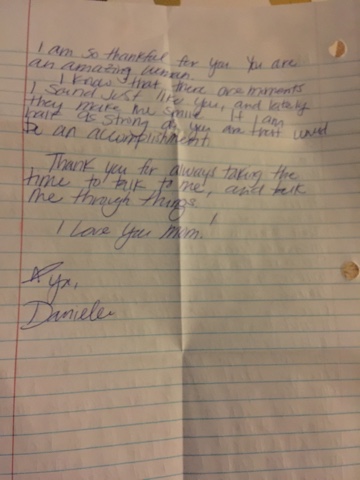 I am so thankful for you. You are
an amazing woman.
I know that there are moments
I sound just like you, and lately
they make me smile. If I am
half as strong as you are that would
be an accomplishment.
Thank you for always taking the
time to talk to me, and talk
me through things!
I love you mom.
Danielle